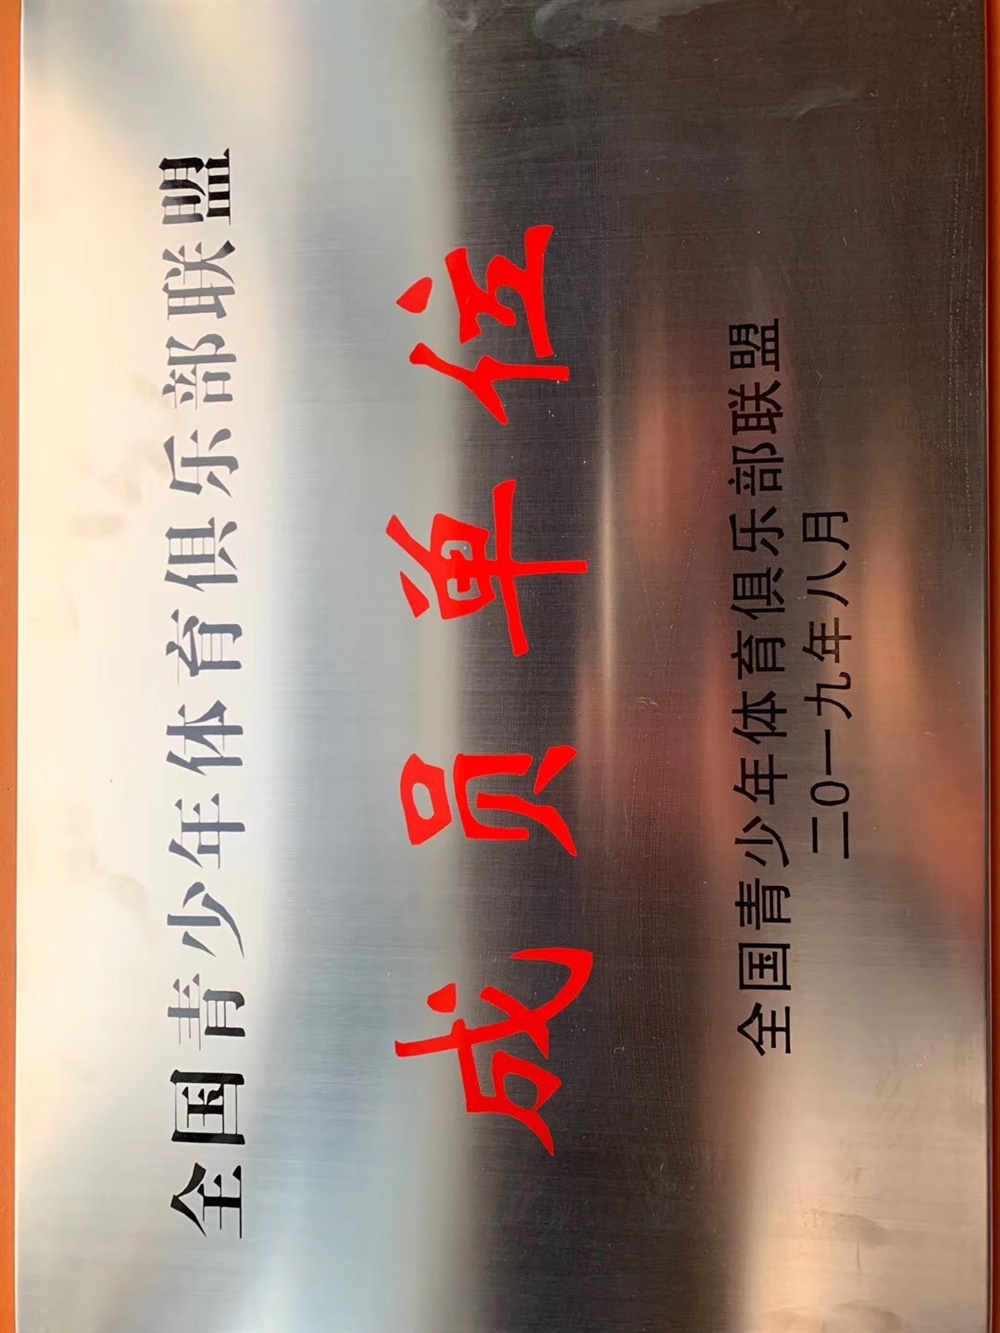 全国青少年体育俱乐部联盟
成员单位
全国青少年体育俱乐部联盟
二0一九年八月